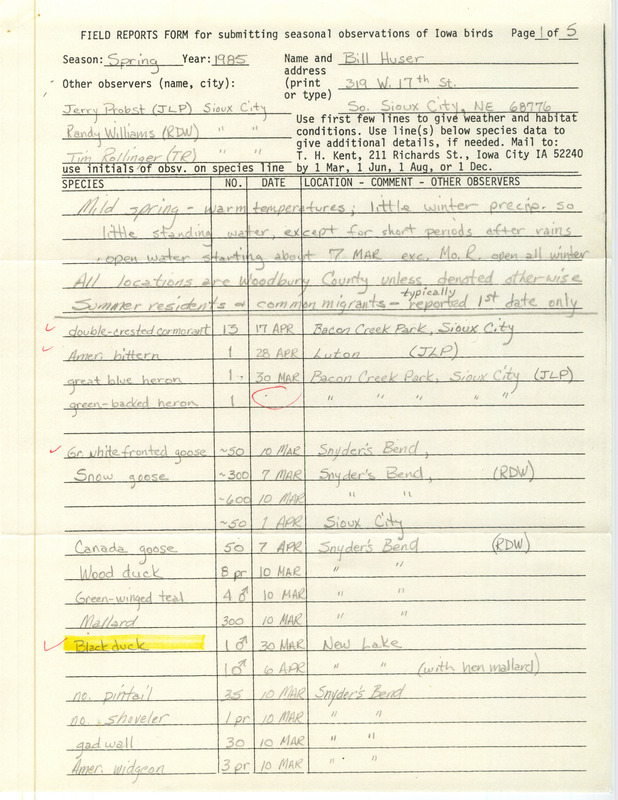 FIELD REPORTS FORM for submitting seasonal observations of Iowa birds Page 1 of 5
Season: Spring Year: 1985 Name and Bill Huser
address
Other observers (name, city): (print 319 W. 17th St.
or type)
Jerry Probst (JLP) Sioux City So. Sioux City, NE 68776
Randy Williams (RDW) " " Use first few lines to give weather and habitat
conditions. Use line(s) below species data to
Tim Rollinger (TR) " " give additional details, if needed. Mail to:
T. H. Kent, 211 Richards St., Iowa City IA 52240
use initials of obsv. on species line by 1 Mar, 1 Jun, 1 Aug, or 1 Dec.
SPECIES NO. DATE LOCATION - COMMENT - OTHER OBSERVERS
Mild spring - warm temperatures; little winter precip. so
little standing water, except for short periods after rains
open water starting about 7 MAR exc. Mo. R. open all winter
All locations are Woodbury County unless denoted otherwise
Summer residents & common migrants - typically reported 1st date only
double-crested cormorant 13 17 APR Bacon Creek Park, Sioux City
Amer. bittern 1 28 APR Luton (JLP)
great blue heron 1 30 MAR Bacon Creek Park, Sioux City (JLP)
green-backed heron 1 " " " " "
Gr. white fronted goose ~50 10 MAR Snyder's Bend,
Snow goose ~300 7 MAR Snyder's Bend, (RDW)
~600 10 MAR " "
~50 1 APR Sioux City
Canada goose 50 7 APR Snyder's Bend (RDW)
Wood duck 8 pr 10 MAR " "
Green-winged teal 4 ♂ 10 MAR " "
Mallard 300 10 MAR " "
Black duck 1 ♂ 30 MAR New Lake
1 ♂ 6 APR " " (with hen mallard)
no. pintail 35 10 MAR Snyder's Bend
no. shoveler 1 pr 10 MAR " "
gadwall 30 10 MAR " "
Amer. widgeon 3 pr 10 MAR " "